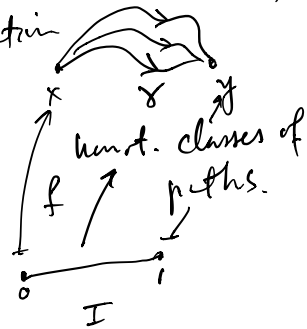 x γ y
homot. classes of
f paths.
0 1
I